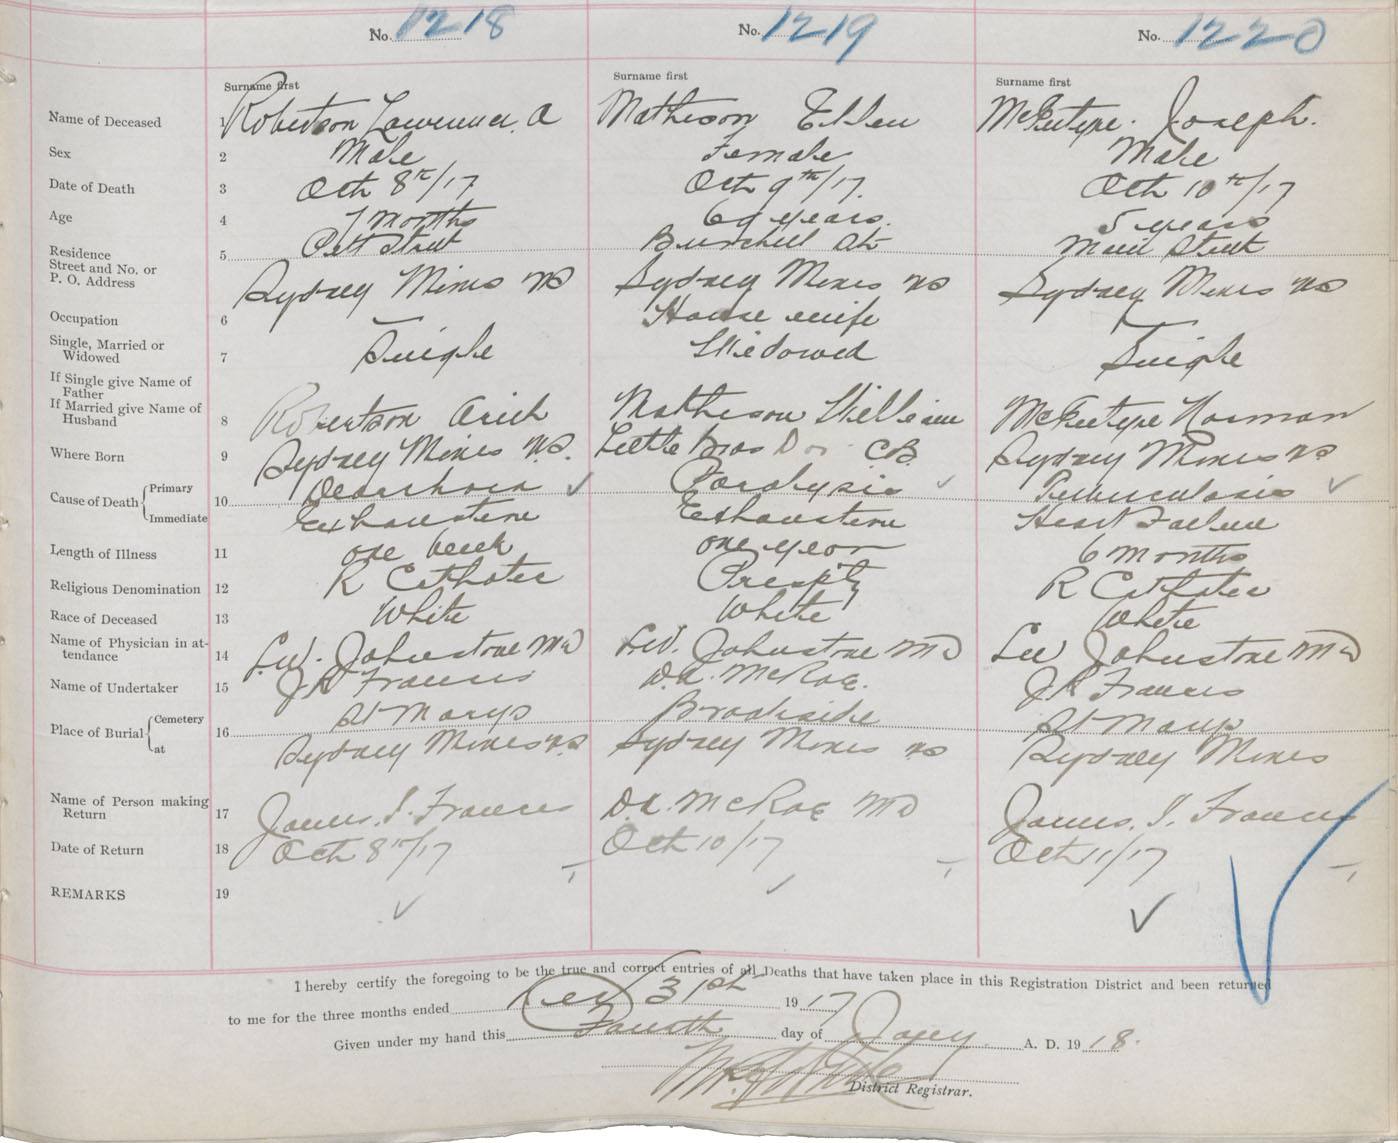 No. 1218 No. 1219 No. 1220
Surname first Surname first Surname first
Name of Deceased 1 Robertson Lawrence. A Mathison Ellen McIntyre. Joseph.
Sex 2 Male Female Male
Date of Death 3 Oct 8th/17 Oct 9th/17. Oct 10th/17
Age 4 7 Months 69 years. 5 years
Residence Street and No. or P. O. Address 5 Pitt Street Burchell St Main Street
Sydney Mines NS Sydney Mines NS Sydney Mines NS
Occupation 6 House wife
Single, Married or Widowed 7 Single Widowed Single
If Single give Name of Father
If Married give Name of Husband 8 Robertson Mathison William McIntyre Norman
Where Born 9 Sydney Mines N.S. Little Bras Dor CB Sydney Mines NS
Cause of Death Primary 10 Dearrhoea ✓ Paralysis ✓ Tuberculosis ✓
Immediate Exhaustion Exhaustion Heart Failure
Length of Illness 11 one week one year 6 months
Religious Denomination 12 R Catholic R Catholic
Race of Deceased 13 White White White
Name of Physician in attendance 14 Johnstone MD Johnstone MD Johnstone MD
Name of Undertaker 15 J.R Francis D.A. McRae. J.R Francis
Place of Burial Cemetery 16 St Marys Brookside St Marys
at Sydney Mines N.S Sydney Mines NS Sydney Mines
Name of Person making Return 17 James. J. Francis D.A. McRae MD James. J. Francis
Date of Return 18 Oct 8th/17 Oct 10/17 Oct 11/17
REMARKS 19 ✓ ✓ ✓
I hereby certify the foregoing to be the true and correct entries of all Deaths that have taken place in this Registration District and been returned
to me for the three months ended Dec 31st 1917
Given under my hand this Fourth day of Jany. A. D. 1918.
District Registrar.